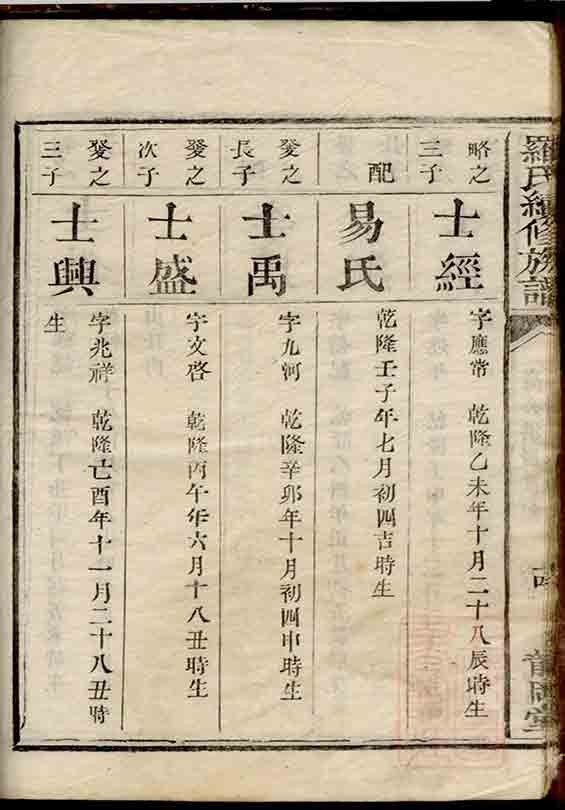 羅氏續修族譜
略之
三子
士經
字應常 乾隆乙未年十月二十八辰時生
配
易氏
乾隆壬子年七月初四吉時生
發之
長子
士禹
字九河 乾隆辛卯年十月初四申時生
發之
次子
士盛
字文啓 乾隆丙午年六月十八丑時生
發之
三子
士興
字兆祥 乾隆己酉年十一月二十八丑時
生